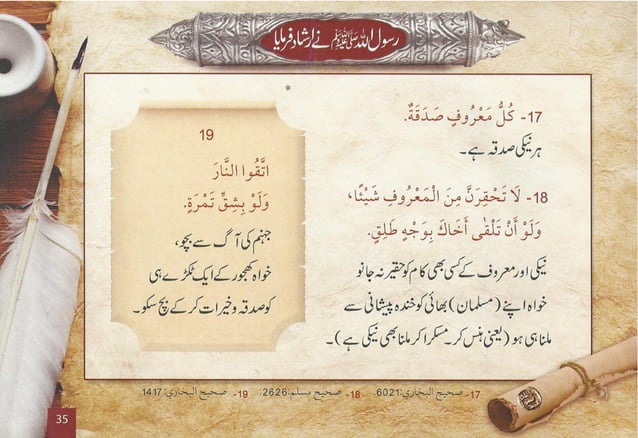 رسول اللہ ﷺ نے ارشاد فرمایا
17- كُلُّ مَعْرُوفٍ صَدَقَةٌ.
ہر نیکی صدقہ ہے۔
18- لَا تَحْقِرَنَّ مِنَ الْمَعْرُوفِ شَيْئًا،
وَلَوْ أَنْ تَلْقٰى أَخَاكَ بِوَجْهٍ طَلِقٍ.
نیکی اور معروف کے کسی بھی کام کو حقیر نہ جانو
خواہ اپنے (مسلمان) بھائی کو خندہ پیشانی سے
ملنا ہی ہو (یعنی ہنس کر۔ مسکرا کر ملنا بھی نیکی ہے)۔
19
اتَّقُوا النَّارَ
وَلَوْ بِشِقِّ تَمْرَةٍ.
جہنم کی آگ سے بچو،
خواہ کھجور کے ایک ٹکڑے ہی
کو صدقہ و خیرات کر کے بچ سکو۔
17- صحيح البخاري: 6021. 18- صحيح مسلم: 2626. 19- صحيح البخاري: 1417.
35